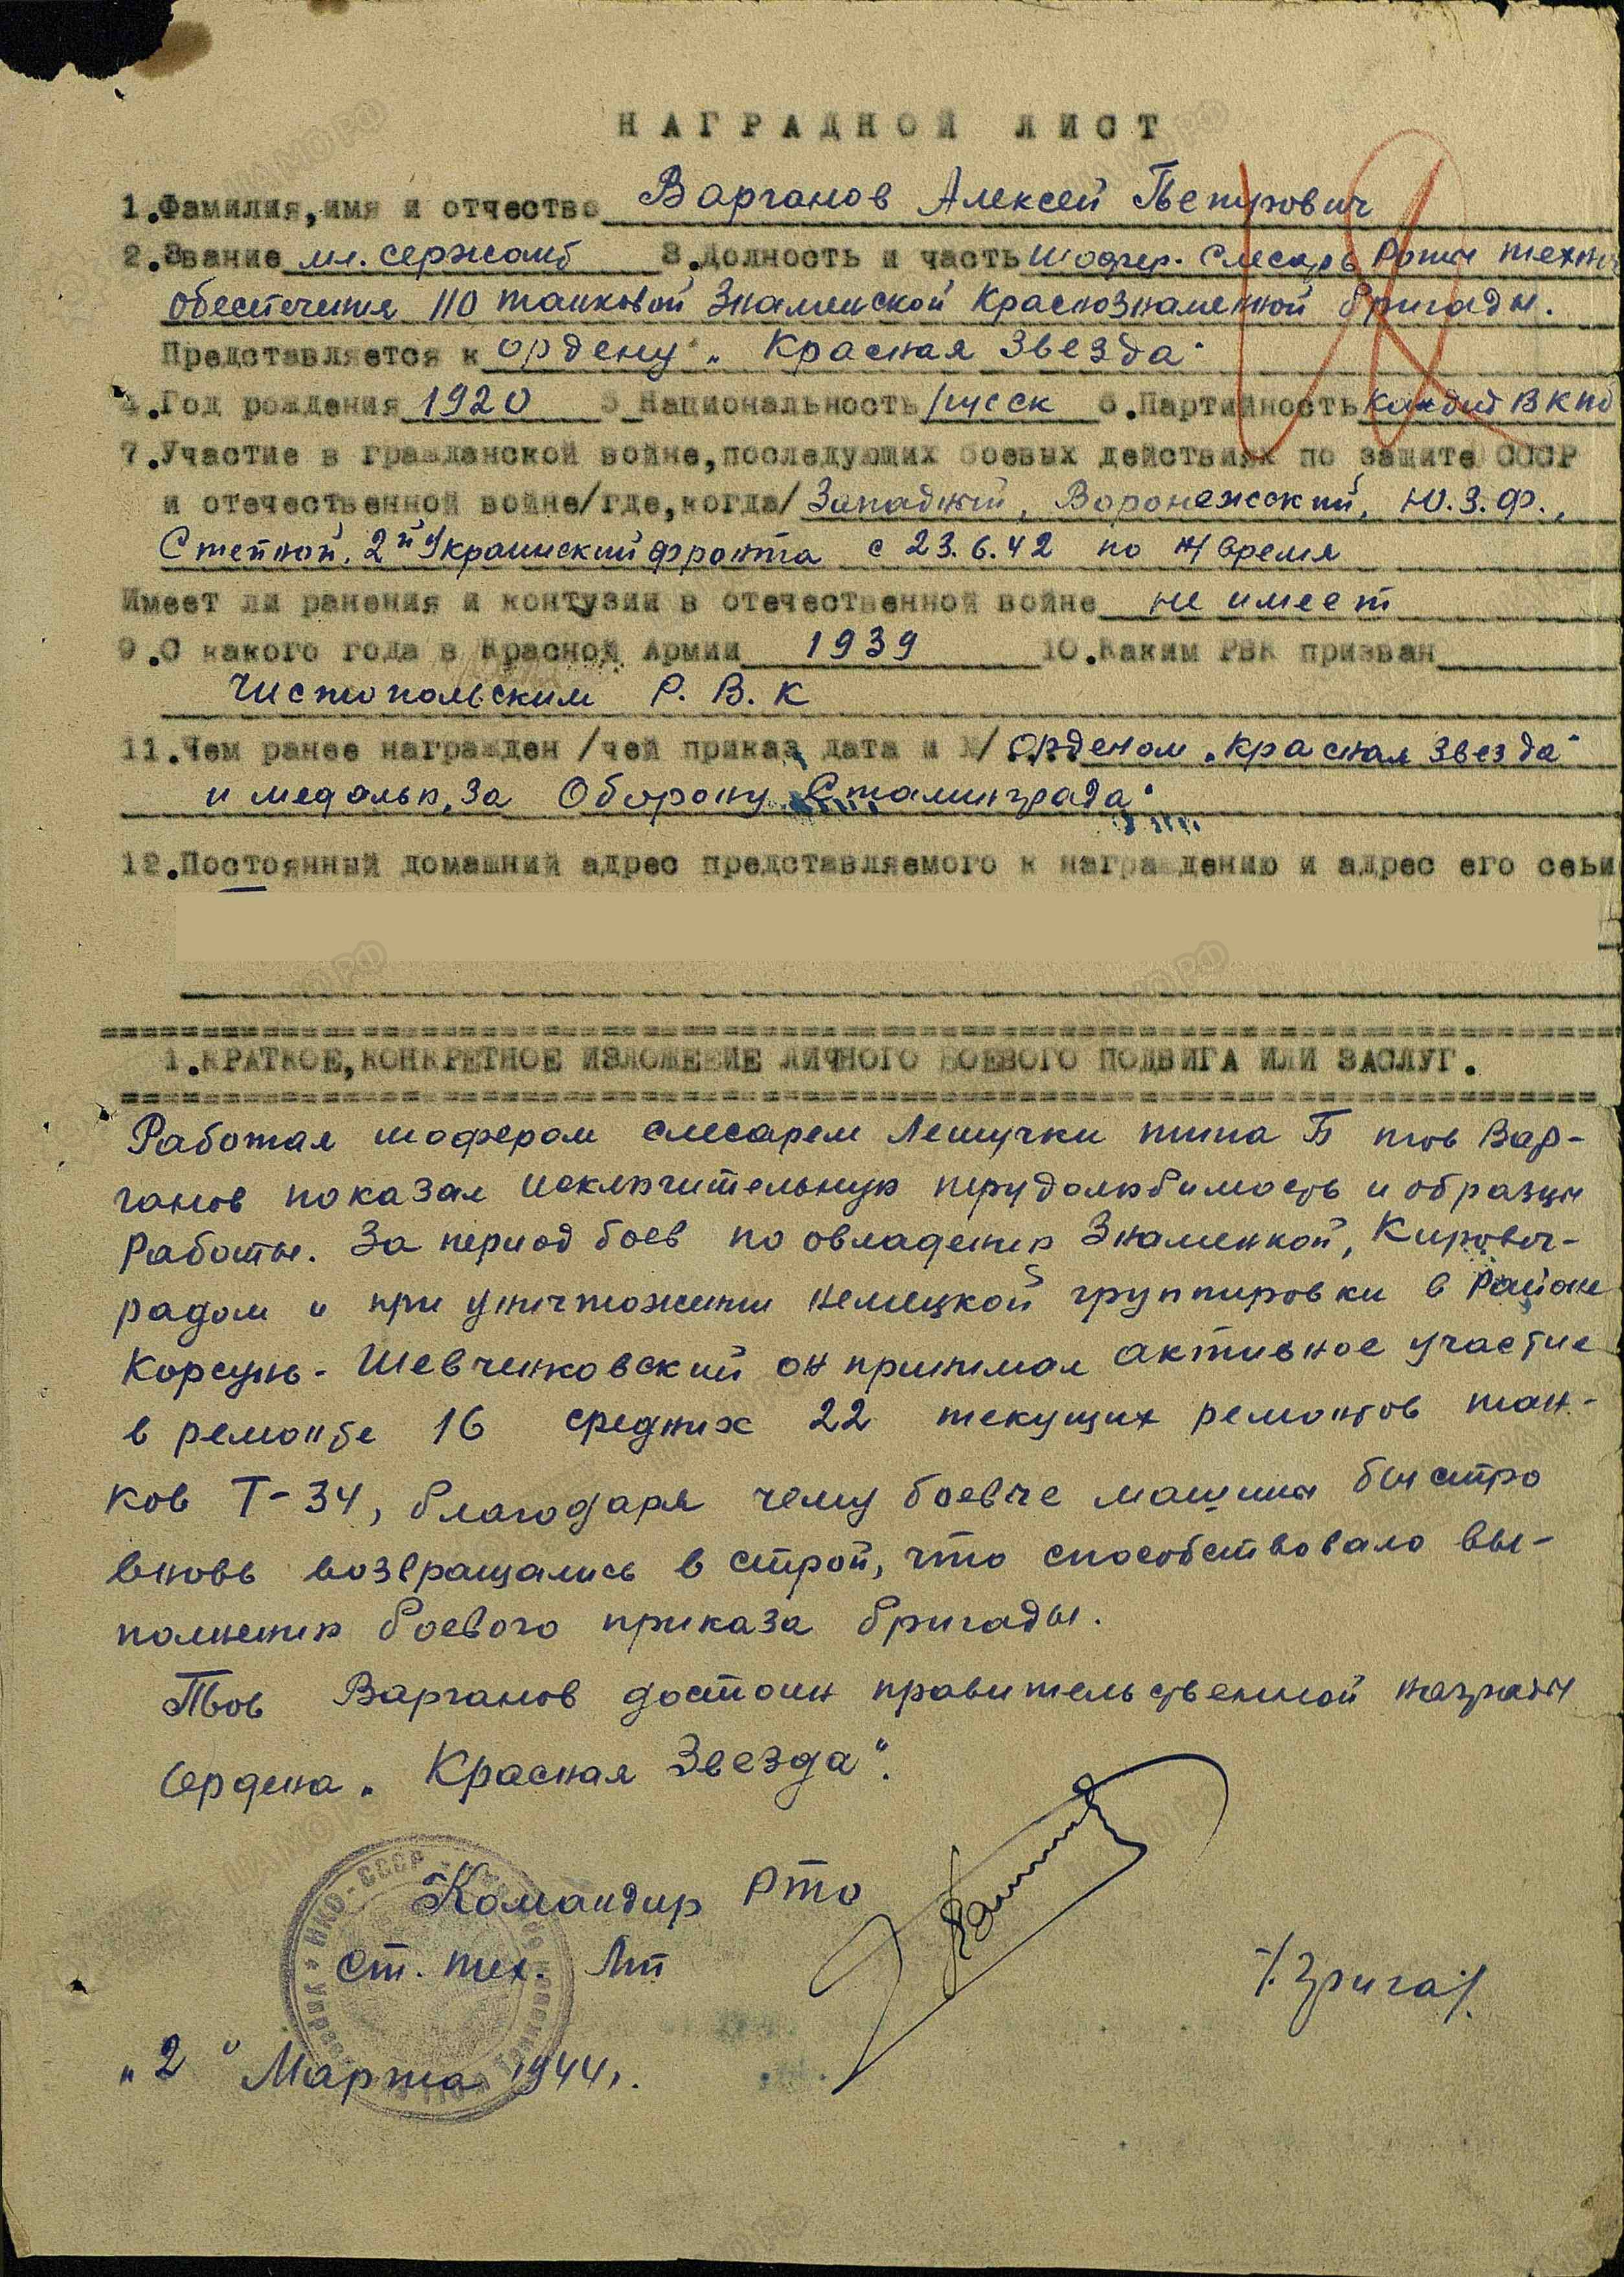 НАГРАДНОЙ ЛИСТ
1.Фамилия,имя и отчество Варганов Алексей Петрович
2.Звание мл. сержант 3.Должность и часть Шофер. Слесарь Роты технич
обеспечения 110 танковой Знаменской Краснознаменной бригады.
Представляется к ордену „Красная Звезда"
4.Год рождения 1920 5 Национальность русск 6.Партийность кандид ВКПб
7.Участие в гражданской войне,последующих боевых действиях по защите СССР
и отечественной войне/где,когда/ Западный, Воронежский, Ю.З.Ф.,
Степной, 2й Украинский фронта с 23.6.42 по н/время
Имеет ли ранения и контузии в отечественной войне не имеет
9.С какого года в Красной Армии 1939 10.Каким РВК призван
Чистопольским Р.В.К
11.Чем ранее награжден /чей приказ, дата и №/ Орденом „Красная Звезда"
и медалью „За Оборону Сталинграда"
12.Постоянный домашний адрес представляемого к награждению и адрес его семьи
1.КРАТКОЕ,КОНКРЕТНОЕ ИЗЛОЖЕНИЕ ЛИЧНОГО БОЕВОГО ПОДВИГА ИЛИ ЗАСЛУГ.
Работая шофером слесарем Летучки типа Б тов Вар-
ганов показал исключительную трудолюбимость и образцы
Работы. За период боев по овладению Знаменкой, Кировог-
радом и при уничтожении немецкой группировки в Районе
Корсунь-Шевченковский он принимал активное участие
в ремонте 16 средних 22 текущих ремонтов тан-
ков Т-34, благодаря чему боевые машины быстро
вновь возвращались в строй, что способствовало вы-
полнению боевого приказа бригады.
Тов Варганов достоин правительственной награды
Ордена „Красная Звезда".
Командир РТО
Ст. тех. Лт
/Зрига/.
„2" Марта 1944г.
НКО-СССР